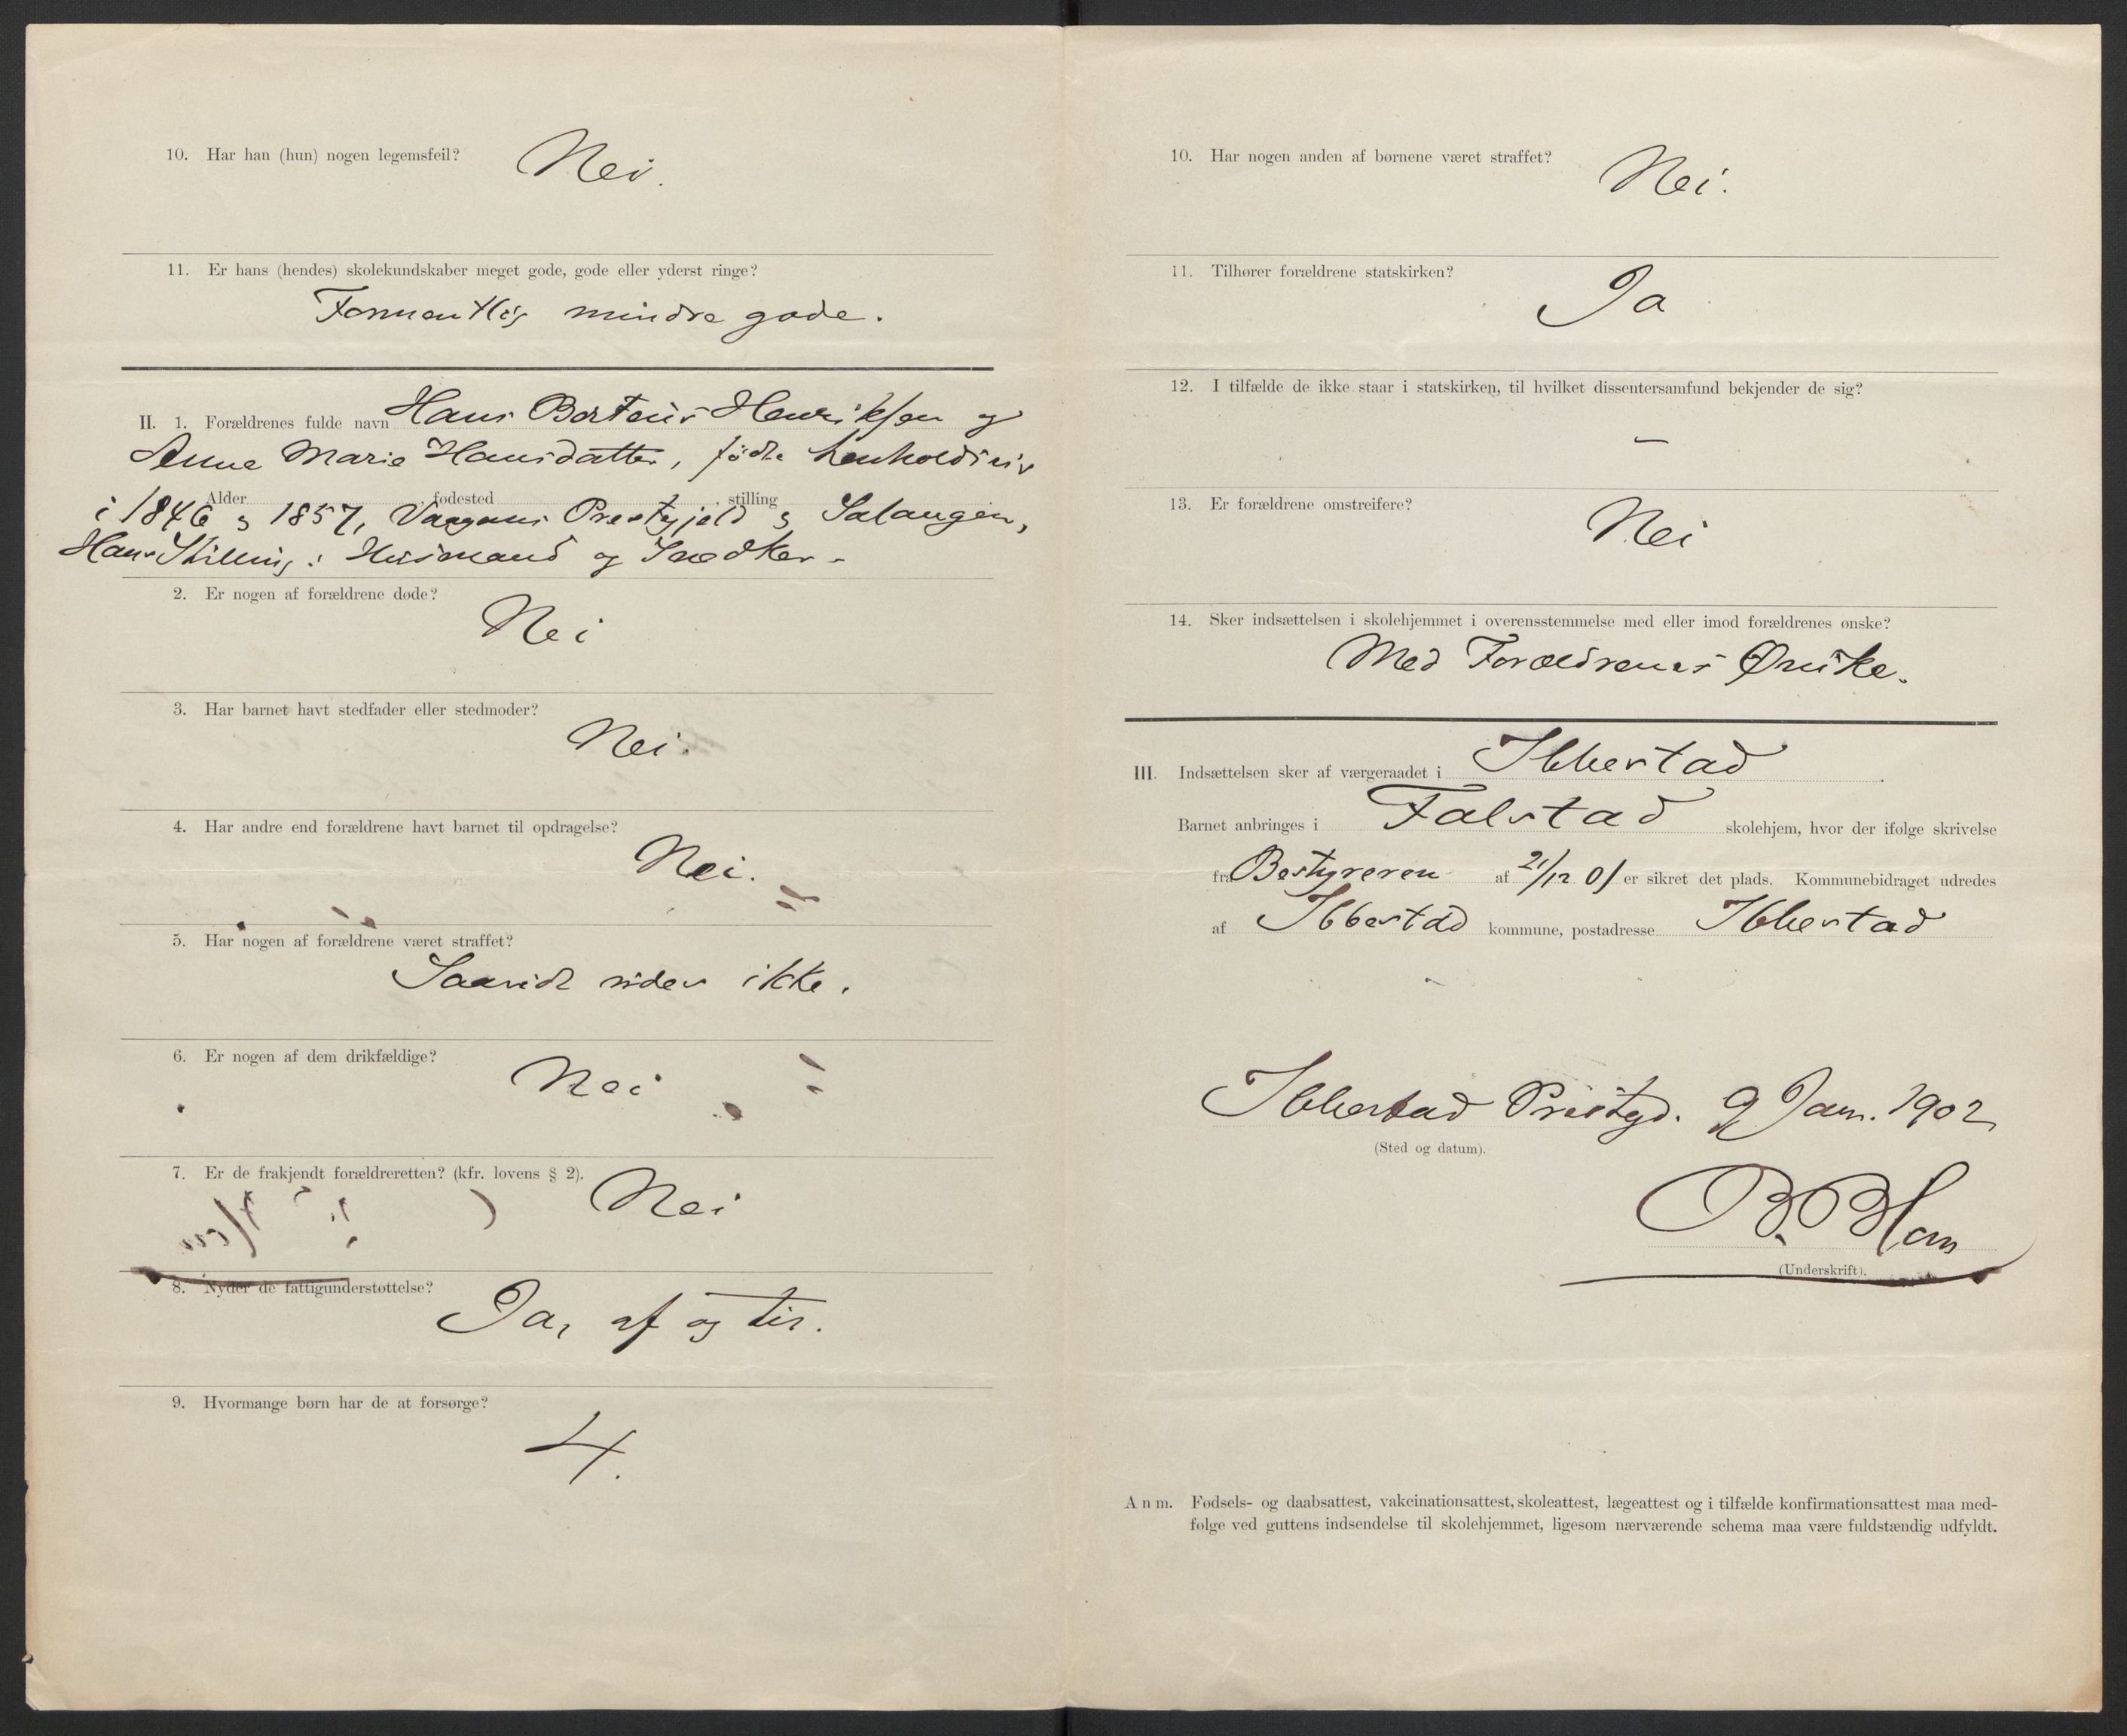 10. Har han (hun) nogen legemsfeil? Nei.
11. Er hans (hendes) skolekundskaber meget gode, gode eller yderst ringe?
Formentlig mindre gode.
II. 1. Forældrenes fulde navn Hans Berteus Henriksen og
Anne Marie Hansdatter, födte henholdsvis
Alder , fødested , stilling
i 1846 og 1857, Vaagans Prestgjeld og Salangen,
Hans Stilling: Husmand og Snedker.
2. Er nogen af forældrene døde? Nei
3. Har barnet havt stedfader eller stedmoder? Nei.
4. Har andre end forældrene havt barnet til opdragelse? Nei.
5. Har nogen af forældrene været straffet?
Saavidt vides ikke.
6. Er nogen af dem drikfældige? Nei
7. Er de frakjendt forældreretten? (kfr. lovens § 2). Nei
8. Nyder de fattigunderstøttelse? Ja, af og til.
9. Hvormange børn har de at forsørge?
4.
10. Har nogen anden af børnene været straffet? Nei.
11. Tilhører forældrene statskirken? Ja
12. I tilfælde de ikke staar i statskirken, til hvilket dissentersamfund bekjender de sig?
—
13. Er forældrene omstreifere? Nei
14. Sker indsættelsen i skolehjemmet i overensstemmelse med eller imod forældrenes ønske?
Med Forældrenes Ønske.
III. Indsættelsen sker af værgeraadet i Ibbestad.
Barnet anbringes i Falstad skolehjem, hvor der ifølge skrivelse
fra Bestyreren af 21/12 01 er sikret det plads. Kommunebidraget udredes
af Ibbestad kommune, postadresse Ibbestad
Ibbestad Prestgd. 9 Jan. 1902
(Sted og datum).
(Underskrift).
Anm. Fødsels- og daabsattest, vakcinationsattest, skoleattest, lægeattest og i tilfælde konfirmationsattest maa med-
følge ved guttens indsendelse til skolehjemmet, ligesom nærværende schema maa være fuldstændig udfyldt.